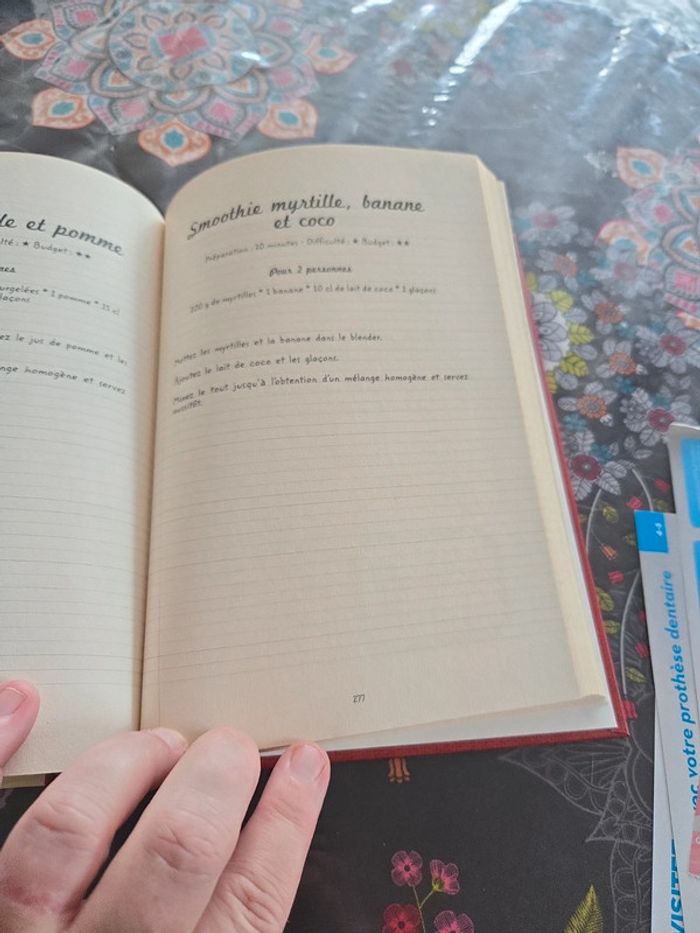 le et pomme
lté : ★ Budget : ★★
nes
urgelées * 1 pomme * 15 cl
glaçons
ez le jus de pomme et les
nge homogène et servez
Smoothie myrtille, banane
et coco
Préparation : 10 minutes - Difficulté : ★ Budget : ★★
Pour 2 personnes
200 g de myrtilles * 1 banane * 10 cl de lait de coco * 2 glaçons
Mettez les myrtilles et la banane dans le blender.
Ajoutez le lait de coco et les glaçons.
Mixez le tout jusqu'à l'obtention d'un mélange homogène et servez
aussitôt.
277
4-5
ec votre prothèse dentaire
VISITE